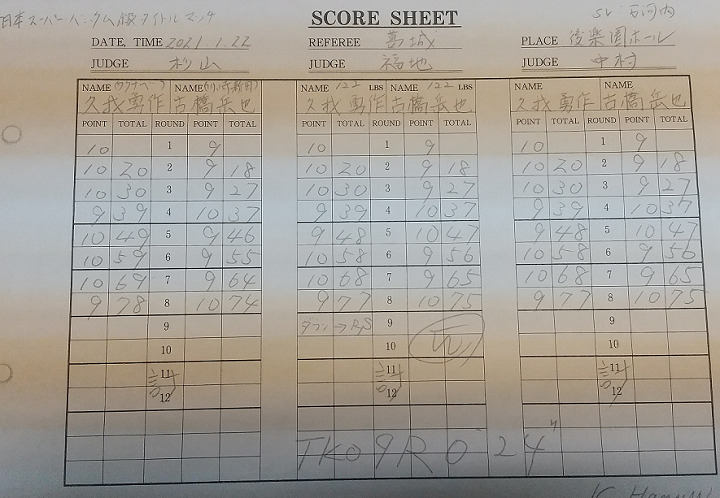 日本スーパーバンタム級タイトルマッチ SCORE SHEET SV: 石河内
DATE, TIME 2021 1.22 REFEREE 葛城 PLACE 後楽園ホール
JUDGE 杉山 JUDGE 福地 JUDGE 中村
NAME (ワタナベ) NAME NAME 122 LBS NAME 122 LBS NAME NAME
久我勇作 古橋岳也 久我勇作 古橋岳也 久我勇作 古橋岳也
POINT TOTAL ROUND POINT TOTAL POINT TOTAL ROUND POINT TOTAL POINT TOTAL ROUND POINT TOTAL
10 1 9 10 1 9 10 1 9
10 20 2 9 18 10 20 2 9 18 10 20 2 9 18
10 30 3 9 27 10 30 3 9 27 10 30 3 9 27
9 39 4 10 37 9 39 4 10 37 9 39 4 10 37
10 49 5 9 46 9 48 5 10 47 9 48 5 10 47
10 59 6 9 55 10 58 6 9 56 10 58 6 9 56
10 69 7 9 64 10 68 7 9 65 10 68 7 9 65
9 78 8 10 74 9 77 8 10 75 9 77 8 10 75
9 ダウン→RS 9 9
10 10 10
11 11 11
12 12 12
TKO 9R 0'24"